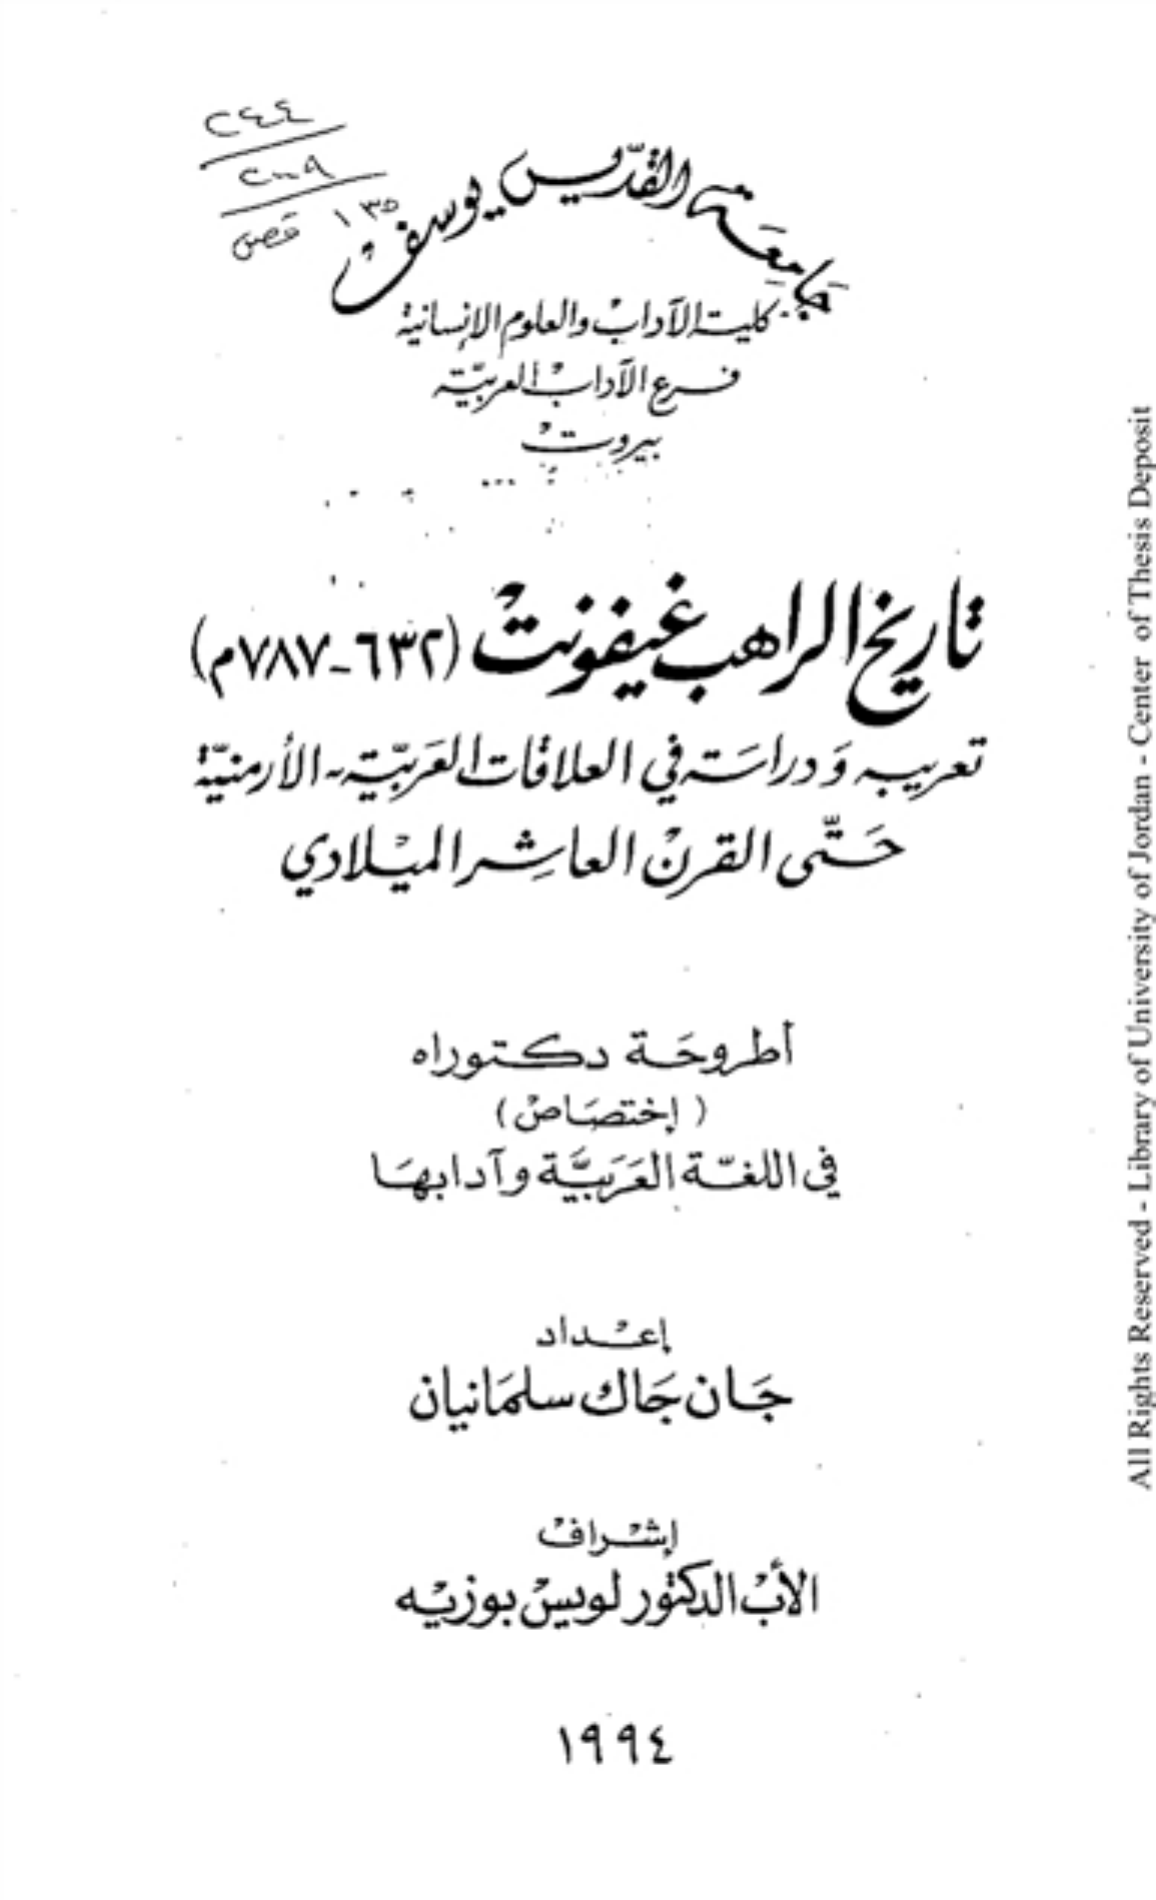 ٢٤٤
١٣٥
جامعة القدّيس يوسف
كلية الآداب والعلوم الإنسانية
فرع الآداب العربيّة
بيروت
تاريخ الراهب غيفونت (٦٣٢-٧٨٧م)
تعريب وَدراسَة في العلاقات العَربيّة-الأرمنيّة
حَتّى القرن العاشِر الميلادي
أطروحَة دكتوراه
(إختصَاص)
في اللغّة العَرَبيَّة وآدابهَا
إعداد
جَان جَاك سلمَانيان
إشراف
الأب الدكتور لويس بوزيه
١٩٩٤
All Rights Reserved - Library of University of Jordan - Center of Thesis Deposit